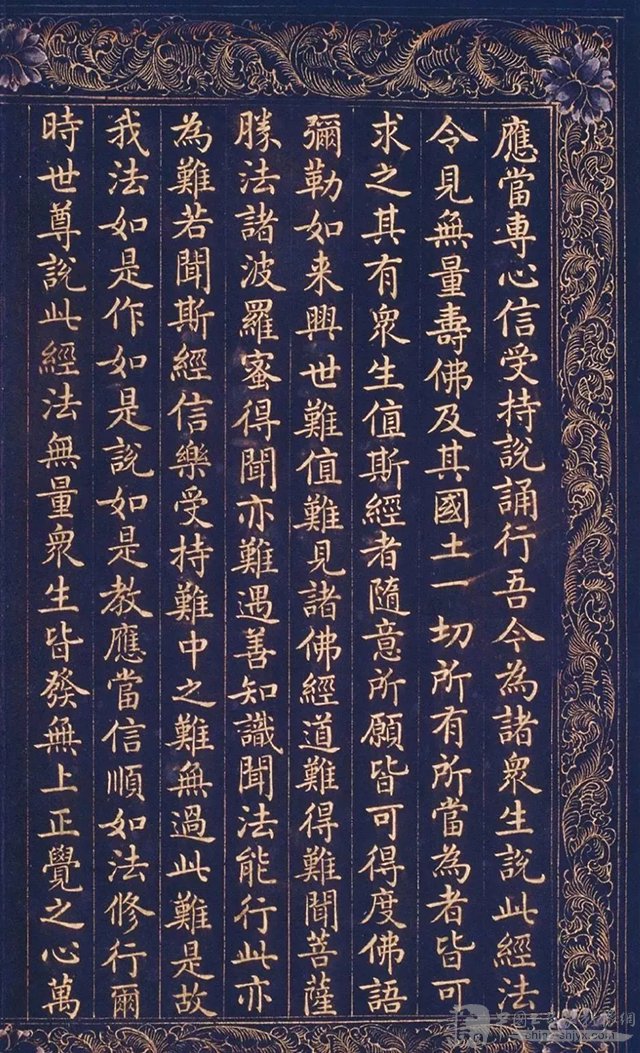 應當專心信受持說誦行吾今為諸衆生說此經法
令見無量壽佛及其國土一切所有所當為者皆可
求之其有衆生值斯經者隨意所願皆可得度佛語
彌勒如来興世難值難見諸佛經道難得難聞菩薩
勝法諸波羅蜜得聞亦難遇善知識聞法能行此亦
為難若聞斯經信樂受持難中之難無過此難是故
我法如是作如是說如是教應當信順如法修行爾
時世尊說此經法無量衆生皆發無上正覺之心萬